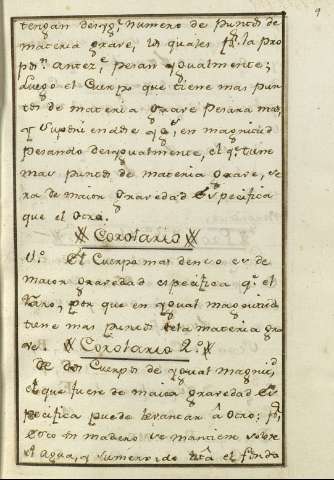 9
tengan desigl. numero de puntos de
materia grave, los quales pr. la pro
posn. antecte. pesan igualmente;
luego el Cuerpo que tiene mas pun
tos de materia grave pesara mas,
y suponiendose igs. en magnitud
pesando desigualmente, el qe. tiene
mas puntos de materia grave, se
ra de maior gravedad Especifica
que el otro.
Corolario
1.º El Cuerpo mas denso es de
maior gravedad especifica qe. el
raro, por que en igual magnitud
tiene mas puntos de la materia gra
ve. Corolario 2.º
De dos Cuerpos de igual magnid.
el que fuere de maior gravedad Es
pecifica puede levantar â otro; pr.
esto un madero se mantiene sobre
el agua, y sumergido hta. el fondo